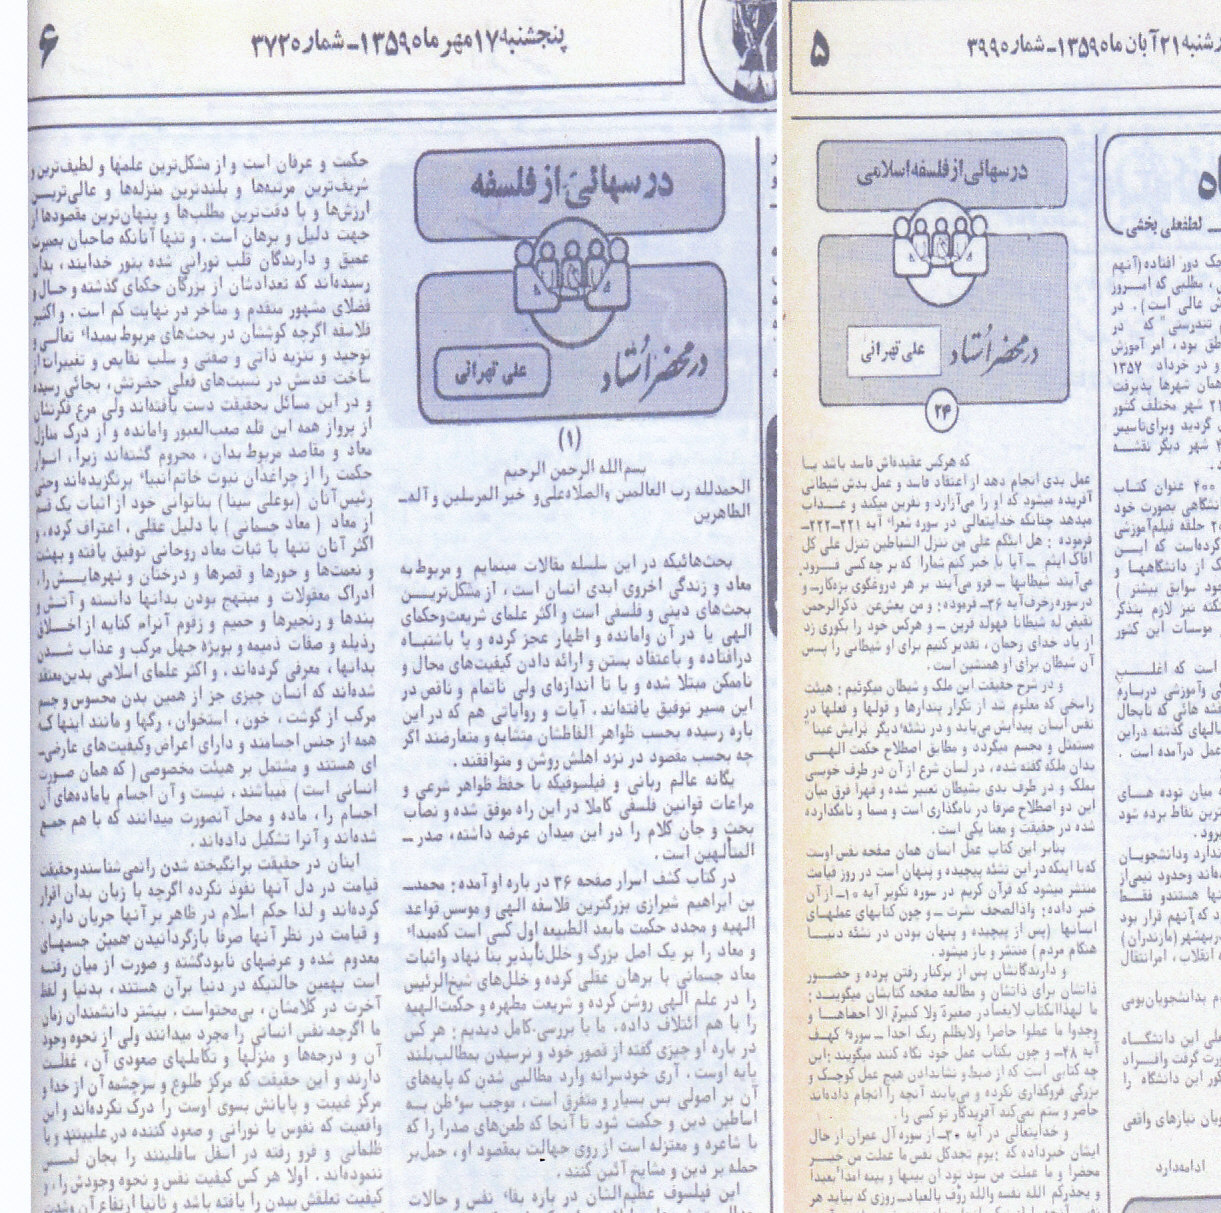 پنجشنبه ۱۷ مهر ماه ۱۳۵۹ــ شماره ۳۷۲۵
۶
درسهائی از فلسفه
در محضر اُستاد
علی تهرانی
(۱)
بسم‌الله الرحمن الرحیم
الحمدلله رب العالمین والصلاه‌علی‌و خیر المرسلین و آله‌ــ
الطاهرین
بحث‌هائیکه در این سلسله مقالات مینمایم و مربوط به
معاد و زندگی اخروی ابدی انسان است ، از مشکل‌تریــن
بحث‌های دینی و فلسفی است و اکثر علمای شریعت‌وحکمای
الهی یا در آن وامانده و اظهار عجز کرده و یا باشتبــاه
درافتاده و باعتقاد بستن و ارائه دادن کیفیت‌های محال و
ناممکن مبتلا شده و یا تا اندازه‌ای ولی ناتمام و ناقص در
این مسیر توفیق یافته‌اند . آیات و روایاتی هم که در این
باره رسیده بحسب ظواهر الفاظشان متشابه و متعارضند اگر
چه بحسب مقصود در نزد اهلش روشن و متوافقند .
یگانه عالم ربانی و فیلسوفیکه با حفظ ظواهر شرعی و
مراعات قوانین فلسفی کاملا در این راه موفق شده و نصاب
بحث و جان کلام را در این میدان عرضه داشته ، صدر ــ
المتألهین است .
در کتاب کشف اسرار صفحه ۳۶ در باره او آمده : محمدــ
بن ابراهیم شیرازی بزرگترین فلاسفه الهی و موسس قواعد
الهیه و مجدد حکمت مابعد الطبیعه اول کسی است که‌مبداء
و معاد را بر یک اصل بزرگ و خلل‌ناپذیر بنا نهاد واثبات
معاد جسمانی با برهان عقلی کرده و خلل‌های شیخ‌الرئیس
را در علم الهی روشن کرده و شریعت مطهره و حکمت‌الهیه
را با هم ائتلاف داده ، ما با بررسی کامل دیدیم : هر کس
در باره او چیزی گفته از قصور خود و نرسیدن بمطالب‌بلند
پایه اوست . آری خودسرانه وارد مطالبی شدن که پایه‌های
آن بر اصولی بس بسیار و متفرق است ، موجب سوءظن بــه
اساطین دین و حکمت شود تا آنجا که طعن‌های صدرا را که
با شاعره و معتزله است از روی جهالت بمقصود او ، حمل‌بر
حمله بر دین و مشایخ آئین کنند .
این فیلسوف عظیم‌الشان در باره بقاء نفس و حالات
حکمت و عرفان است و از مشکل‌ترین علمها و لطیف‌ترین و
شریف‌ترین مرتبه‌ها و بلندترین منزله‌ها و عالی‌تریــن
ارزش‌ها و با دقت‌ترین مطلب‌ها و پنهان‌ترین مقصودها از
جهت دلیل و برهان است . و تنها آنانکه صاحبان بصیرت
عمیق و دارندگان قلب نورانی شده بنور خدایند ، بدان
رسیده‌اند که تعدادشان از بزرگان حکمای گذشته و حــال و
فضلای مشهور متقدم و متاخر در نهایت کم است . و اکثر
فلاسفه اگرچه کوششان در بحث‌های مربوط بمبداء تعالــی و
توحید و تنزیه ذاتی و صفتی و سلب نقایص و تغییرات از
ساخت قدسش در نسبت‌های فعلی حضرتش ، بجائی رسیده
و در این مسائل بحقیقت دست یافته‌اند ولی مرغ فکرشان
از پرواز همه این قله صعب‌العبور وامانده و از درک منازل
معاد و مقاصد مربوط بدان ، محروم گشته‌اند زیرا ، انــوار
حکمت را از چراغدان نبوت خاتم‌انبیاء برنگزیده‌اند وحتی
رئیس آنان (بوعلی سینا ) بناتوانی خود از اثبات یک قسم
از معاد ( معاد جسمانی ) با دلیل عقلی ، اعتراف کرده . و
اکثر آنان تنها با ثبات معاد روحانی توفیق یافته و بهشت
و نعمت‌ها و حورها و قصرها و درختان و نهرهایــش را ،
ادراک معقولات و مبتهج بودن بدانها دانسته و آتــش و
بندها و زنجیرها و حمیم و زقوم آنرا ، کنایه از اخــلاق
رذیله و صفات ذمیمه و بویژه جهل مرکب و عذاب شــدن
بدانها ، معرفی کرده‌اند . و اکثر علمای اسلامی بدین‌معتقد
شده‌اند که انسان چیزی جز از همین بدن محسوس و جسم
مرکب از گوشت ، خون ، استخوان ، رگها و مانند اینها ک
همه از جنس اجسامند و دارای اعراض وکیفیت‌های عارضی‌ــ
ای هستند و مشتمل بر هیئت مخصوصی ( که همان صــورت
انسانی است ) میباشند ، نیست و آن اجسام یاماده‌های آن
اجسام را ، ماده و محل آنصورت میدانند که با هم جمــع
شده‌اند و آنرا تشکیل داده‌اند .
اینان در حقیقت برانگیخته شدن رانمی‌شناسندوحقیقت
قیامت در دل آنها نفوذ نکرده اگرچه با زبان بدان اقرار
کرده‌اند و لذا حکم اسلام در ظاهر بر آنها جریان دارد .
و قیامت در نظر آنها صرفا بازگردانیدن همین جسمهــای
معدوم شده و عرضهای نابودگشته و صورت از میان رفتــه
است بهمین حالتیکه در دنیا برآن هستند ، بدنیا و لفظ
آخرت در کلامشان ، بی‌محتواست . بیشتر دانشمندان زمان
ما اگرچه نفس انسانی را مجرد میدانند ولی از نحوه وجود
آن و درجه‌ها و منزلها و تکاملهای صعودی آن ، غفلــت
دارند و این حقیقت که مرکز طلوع و سرچشمه آن از خدا و
مرکز غیبت و پایانش بسوی اوست را درک نکرده‌اند و این
واقعیت که نفوس یا نورانی و صعود کننده در علیینند و یا
ظلمانی و فرو رفته در اسفل سافلینند را بجان لمــس
ننموده‌اند . اولا هر کس کیفیت نفس و نحوه وجودش را ، و
کیفیت تعلقش ببدن را یافته باشد و ثانیا ارتفاع آن وشدت
رشنبه ۲۱ آبان ماه ۱۳۵۹ــ شماره ۳۹۹۵
۵
درسهائی از فلسفه اسلامی
در محضر اُستاد
علی تهرانی
۲۴
که هرکس عقیده‌اش فاسد باشد یــا
عمل بدی انجام دهد از اعتقاد فاسد و عمل بدش شیطانی
آفریده میشود که او را می‌آزارد و نفرین میکند و عــذاب
میدهد چنانکه خدایتعالی در سوره شعراء آیه ۲۲۱ــ۲۲۲ــ
فرموده : هل انبئکم علی من تنزل الشیاطین تنزل علی کل
افاک اثیم ــ آیا با خبر کنم شما را که بر چه کسی فــرود
می‌آیند شیطانها ــ فرو می‌آیند بر هر دروغگوی بزه‌کارــ و
در سوره زخرف آیه ۳۶ــ فرموده : و من یعش‌عن ذکرالرحمن
نقیض له شیطانا فهوله قرین ــ و هرکس خود را بکوری زد
از یاد خدای رحمان ، تقدیر کنیم برای او شیطانی را پــس
آن شیطان برای او همنشین است .
و در شرح حقیقت این ملک و شیطان میگوئیم : هیئت
راسخی که معلوم شد از تکرار پندارها و قولها و فعلها در
نفس انسان پیدایش می‌یابد و در نشئه دیگر برایش عینا"
متمثل و مجسم میگردد و مطابق اصطلاح حکمت الهــی
بدان ملکه گفته شده ، در لسان شرع از آن در طرف خوبــی
بملک و در طرف بدی بشیطان تعبیر شده و قهرا فرق میان
این دو اصطلاح صرفا در نامگذاری است و مسما و نامگذارده
شده در حقیقت و معنا یکی است .
بنابر این کتاب عمل انسان همان صفحه نفس اوست
که با اینکه در این نشئه پیچیده و پنهان است در روز قیامت
منتشر میشود که قرآن کریم در سوره تکویر آیه ۱۰ــ از آن
خبر داده : واذاالصحف نشرت ــ و چون کتابهای عملهــای
انسانها (پس از پیچیده و پنهان بودن در نشئه دنیــا
هنگام مردم ) منتشر و باز میشود .
و دارندگانشان پس از برکنار رفتن پرده و حضــور
ذاتشان برای ذاتشان و مطالعه صفحه کتابشان میگوینــد :
ما لهذاالکتاب لایغادر صغیرة ولا کبیرة الا احصاهــا و
وجدوا ما عملوا حاضرا ولایظلم ربک احدا ــ سوره کهــف
آیه ۴۸ــ و چون بکتاب عمل خود نگاه کنند میگویند : این
چه کتابی است که از ضبط و نشاندادن هیچ عمل کوچک و
بزرگی فروگذاری نکرده و می‌یابند آنچه را انجام داده‌اند
حاضر و ستم نمی‌کند آفریدگار تو کسی را .
و خدایتعالی در آیه ۳۰ــ از سوره آل عمران از حال
ایشان خبرداده که : یوم تجدکل نفس ما عملت من خیــر
محضرا و ما عملت من سوء تود لو ان بینها و بینه امدا بعیدا
و یحذرکم الله نفسه والله رؤف بالعباد ــ روزی که بیابد هر
اه
ــ لطفعلی بخشی
چک دور افتاده (آنهم
، مطلبی که امــروز
ش عالی است ) . در
تندرستی" که در
طق بود ، امر آموزش
و در خرداد ۱۳۵۷
همان شهرها پذیرفت
شهر مختلف کشور
گردید وبرای‌تاسیس
شهر دیگر نقشــه
۴۰۰ عنوان کتــاب
نشگاهی بصورت خود
حلقه فیلم‌آموزشی
کرده‌است که ایــن
ک از دانشگاههــا و
خود سوابق بیشتر )
نکته نیز لازم بتذکر
موسسات این کشور
است که اغلــب
ی وآموزشی درباره
قشه هائی که تابحال
سالهای گذشته دراین
عمل درآمده است .
میان توده هــای
ترین نقاط برده شود
برود .
ندارد ودانشجویــان
ده‌اند وحدود نیمی‌از
تها هستندو فقــط
د که‌آنهم قرار بود
ربهشهر (مازندران )
ه انقلاب ، امرانتقال
م بدانشجویان‌بومی
ملی این دانشگــاه
ورت گرفت وافــراد
کور این دانشگاه را
یان نیازهای واقعی
ادامه‌دارد